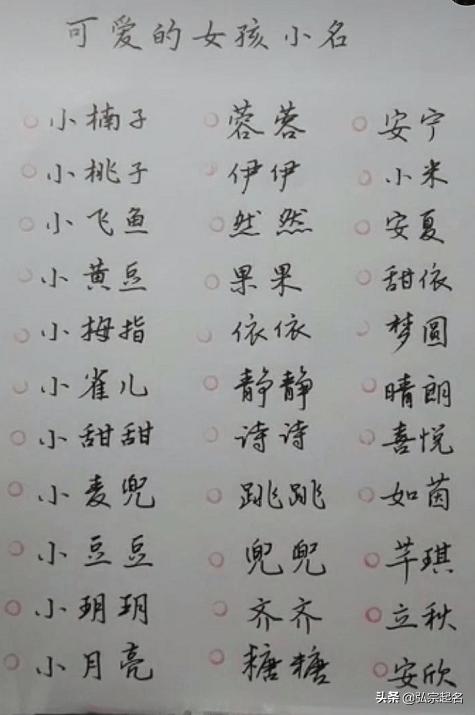 可爱的女孩小名
小楠子 蓉蓉 安宁
小桃子 伊伊 小米
小飞鱼 然然 安夏
小黄豆 果果 甜依
小拇指 依依 梦圆
小雀儿 静静 晴朗
小甜甜 诗诗 喜悦
小麦兜 跳跳 如茵
小豆豆 兜兜 芊琪
小玥玥 齐齐 立秋
小月亮 糖糖 安欣
头条 @弘宗起名